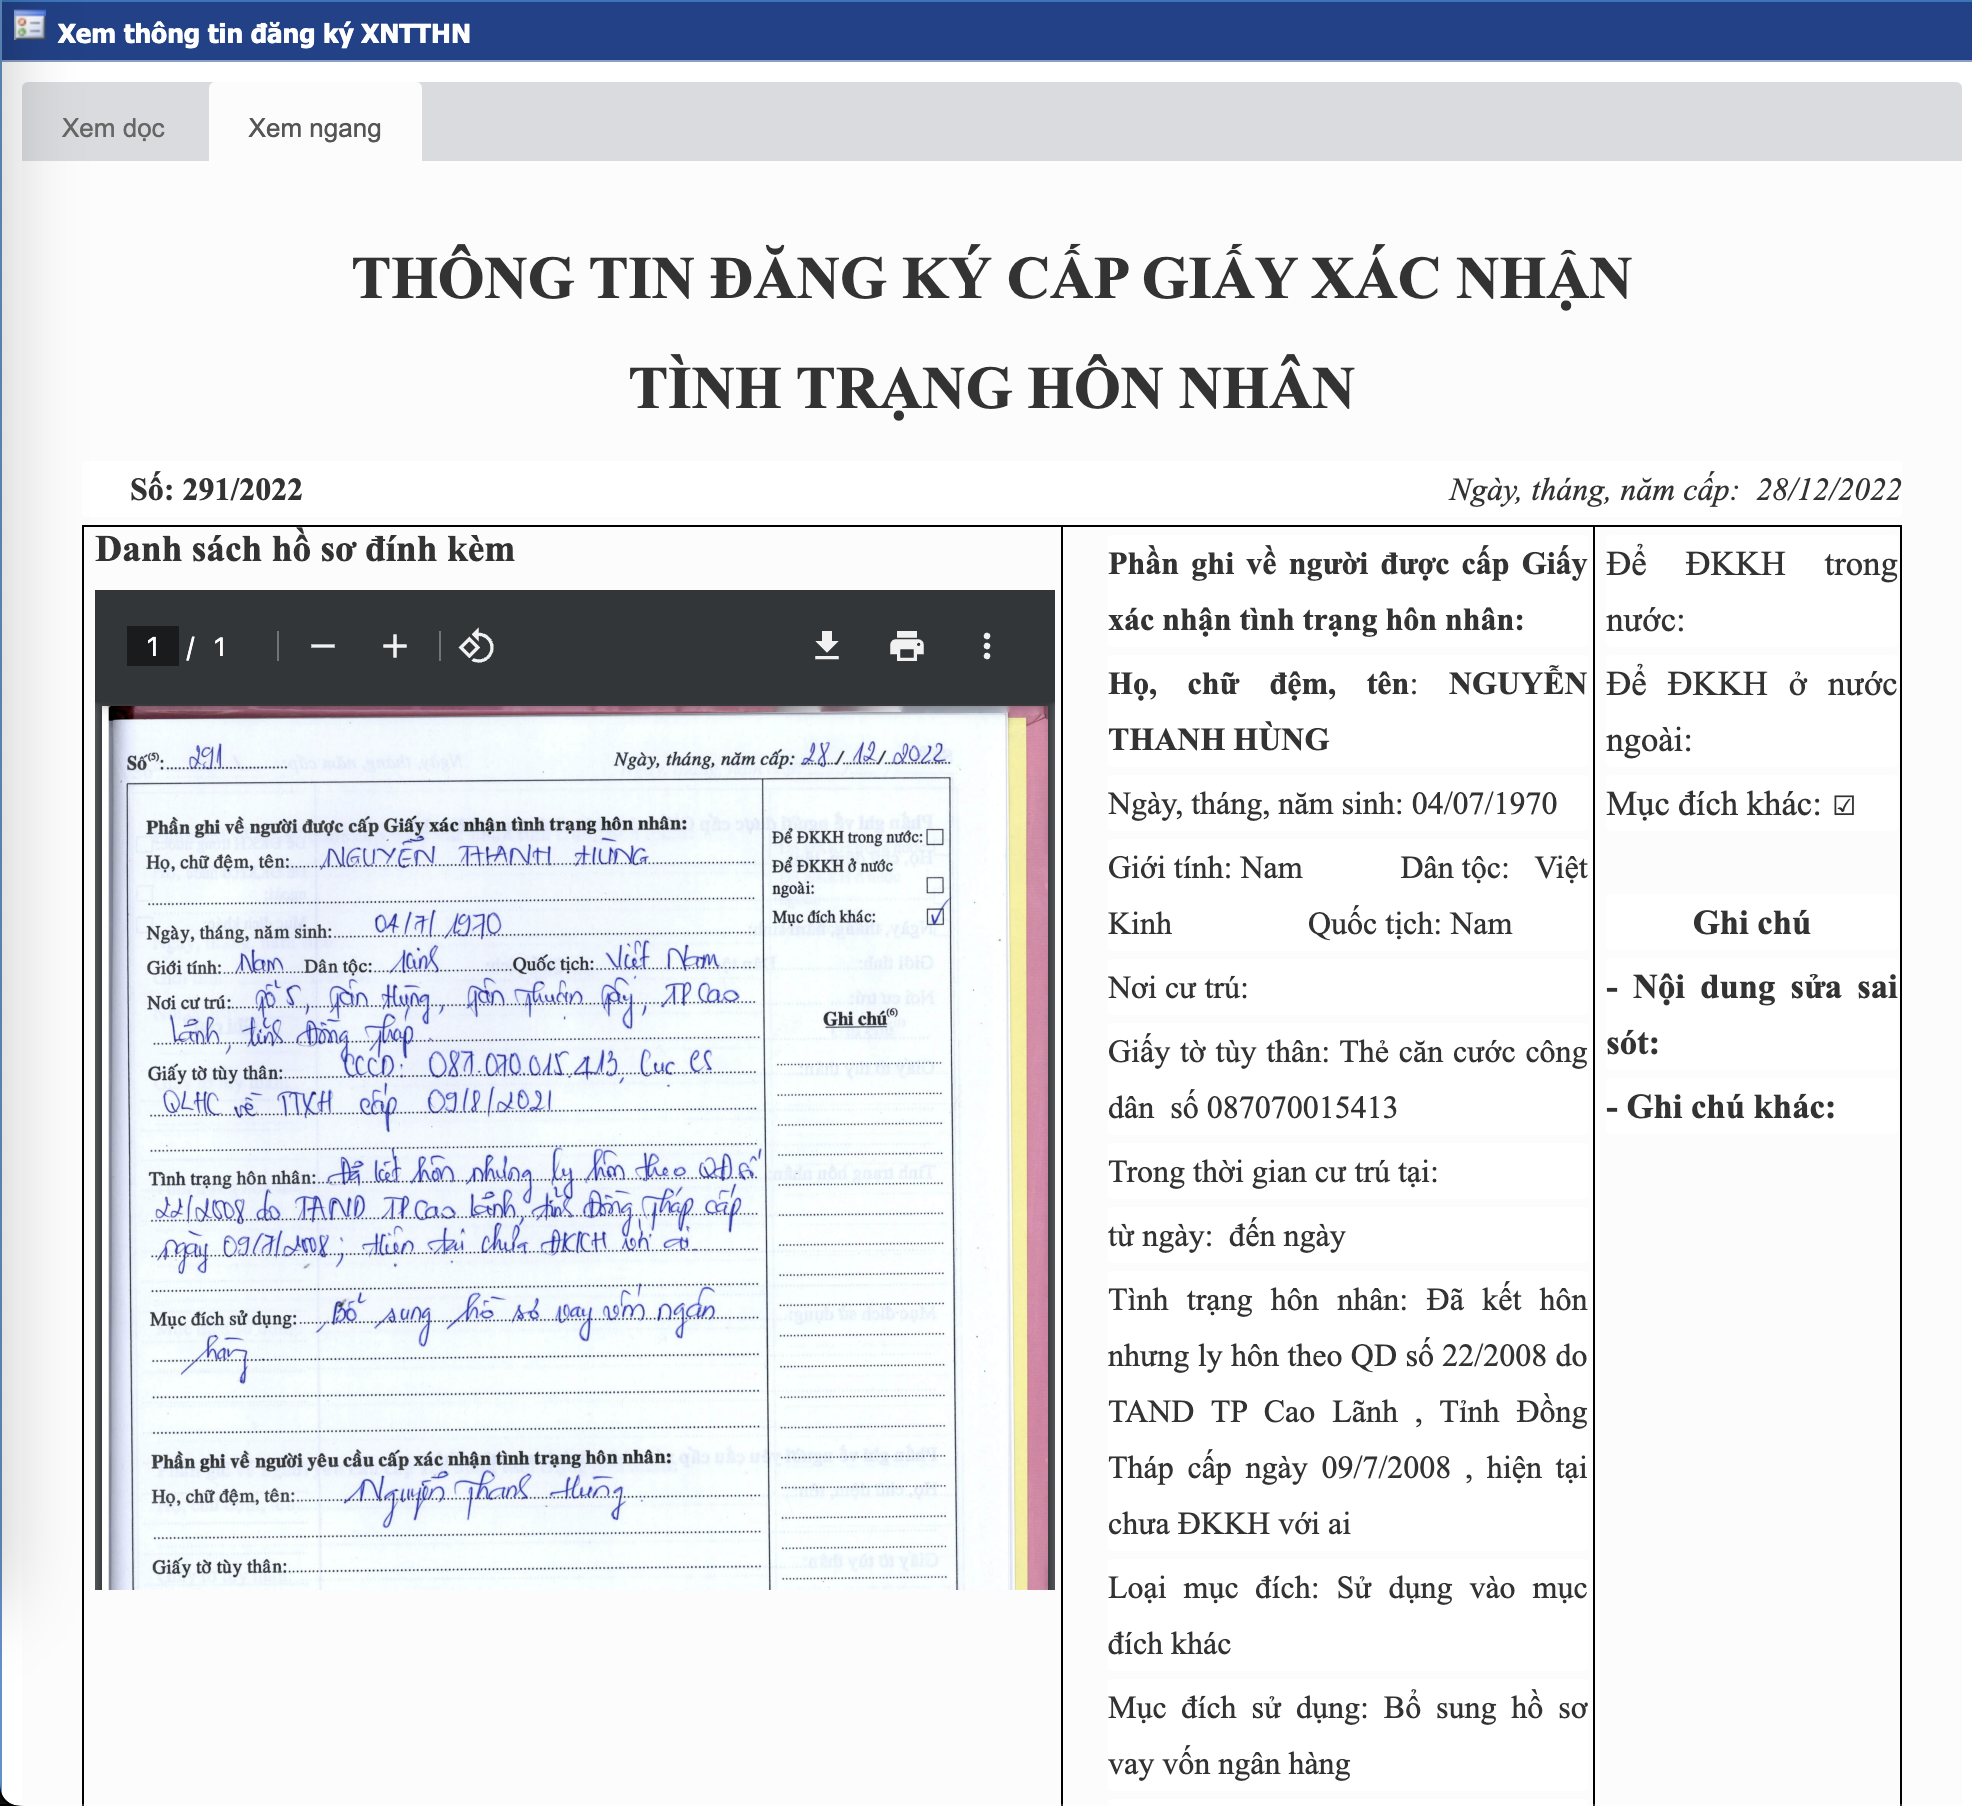 Xem thông tin đăng ký XNTTHN
Xem dọc
Xem ngang
THÔNG TIN ĐĂNG KÝ CẤP GIẤY XÁC NHẬN
TÌNH TRẠNG HÔN NHÂN
Số: 291/2022
Ngày, tháng, năm cấp: 28/12/2022
Danh sách hồ sơ đính kèm
1 / 1
Số(5): 291
Ngày, tháng, năm cấp: 28/12/2022
Phần ghi về người được cấp Giấy xác nhận tình trạng hôn nhân:
Họ, chữ đệm, tên: NGUYỄN THANH HÙNG
Ngày, tháng, năm sinh: 04/7/1970
Giới tính: Nam Dân tộc: Kinh Quốc tịch: Việt Nam
Nơi cư trú: Tổ 5, Tân Hùng, Tân Thuận Tây, TP Cao
Lãnh, tỉnh Đồng Tháp
Giấy tờ tùy thân: CCCD: 087.070.015.413, Cục CS
QLHC về TTXH cấp 09/8/2021
Tình trạng hôn nhân: Đã kết hôn nhưng ly hôn theo QĐ số
22/2008 do TAND TP Cao Lãnh, tỉnh Đồng Tháp cấp
ngày 09/7/2008; Hiện tại chưa ĐKKH với ai.
Mục đích sử dụng: Bổ sung hồ sơ vay vốn ngân
hàng
Phần ghi về người yêu cầu cấp xác nhận tình trạng hôn nhân:
Họ, chữ đệm, tên: Nguyễn Thanh Hùng
Giấy tờ tùy thân:
Để ĐKKH trong nước:
Để ĐKKH ở nước
ngoài:
Mục đích khác:
Ghi chú(6)
Phần ghi về người được cấp Giấy
xác nhận tình trạng hôn nhân:
Họ, chữ đệm, tên: NGUYỄN
THANH HÙNG
Ngày, tháng, năm sinh: 04/07/1970
Giới tính: Nam Dân tộc: Việt
Kinh Quốc tịch: Nam
Nơi cư trú:
Giấy tờ tùy thân: Thẻ căn cước công
dân số 087070015413
Trong thời gian cư trú tại:
từ ngày: đến ngày
Tình trạng hôn nhân: Đã kết hôn
nhưng ly hôn theo QD số 22/2008 do
TAND TP Cao Lãnh , Tỉnh Đồng
Tháp cấp ngày 09/7/2008 , hiện tại
chưa ĐKKH với ai
Loại mục đích: Sử dụng vào mục
đích khác
Mục đích sử dụng: Bổ sung hồ sơ
vay vốn ngân hàng
Để ĐKKH trong
nước:
Để ĐKKH ở nước
ngoài:
Mục đích khác: ☑
Ghi chú
- Nội dung sửa sai
sót:
- Ghi chú khác: